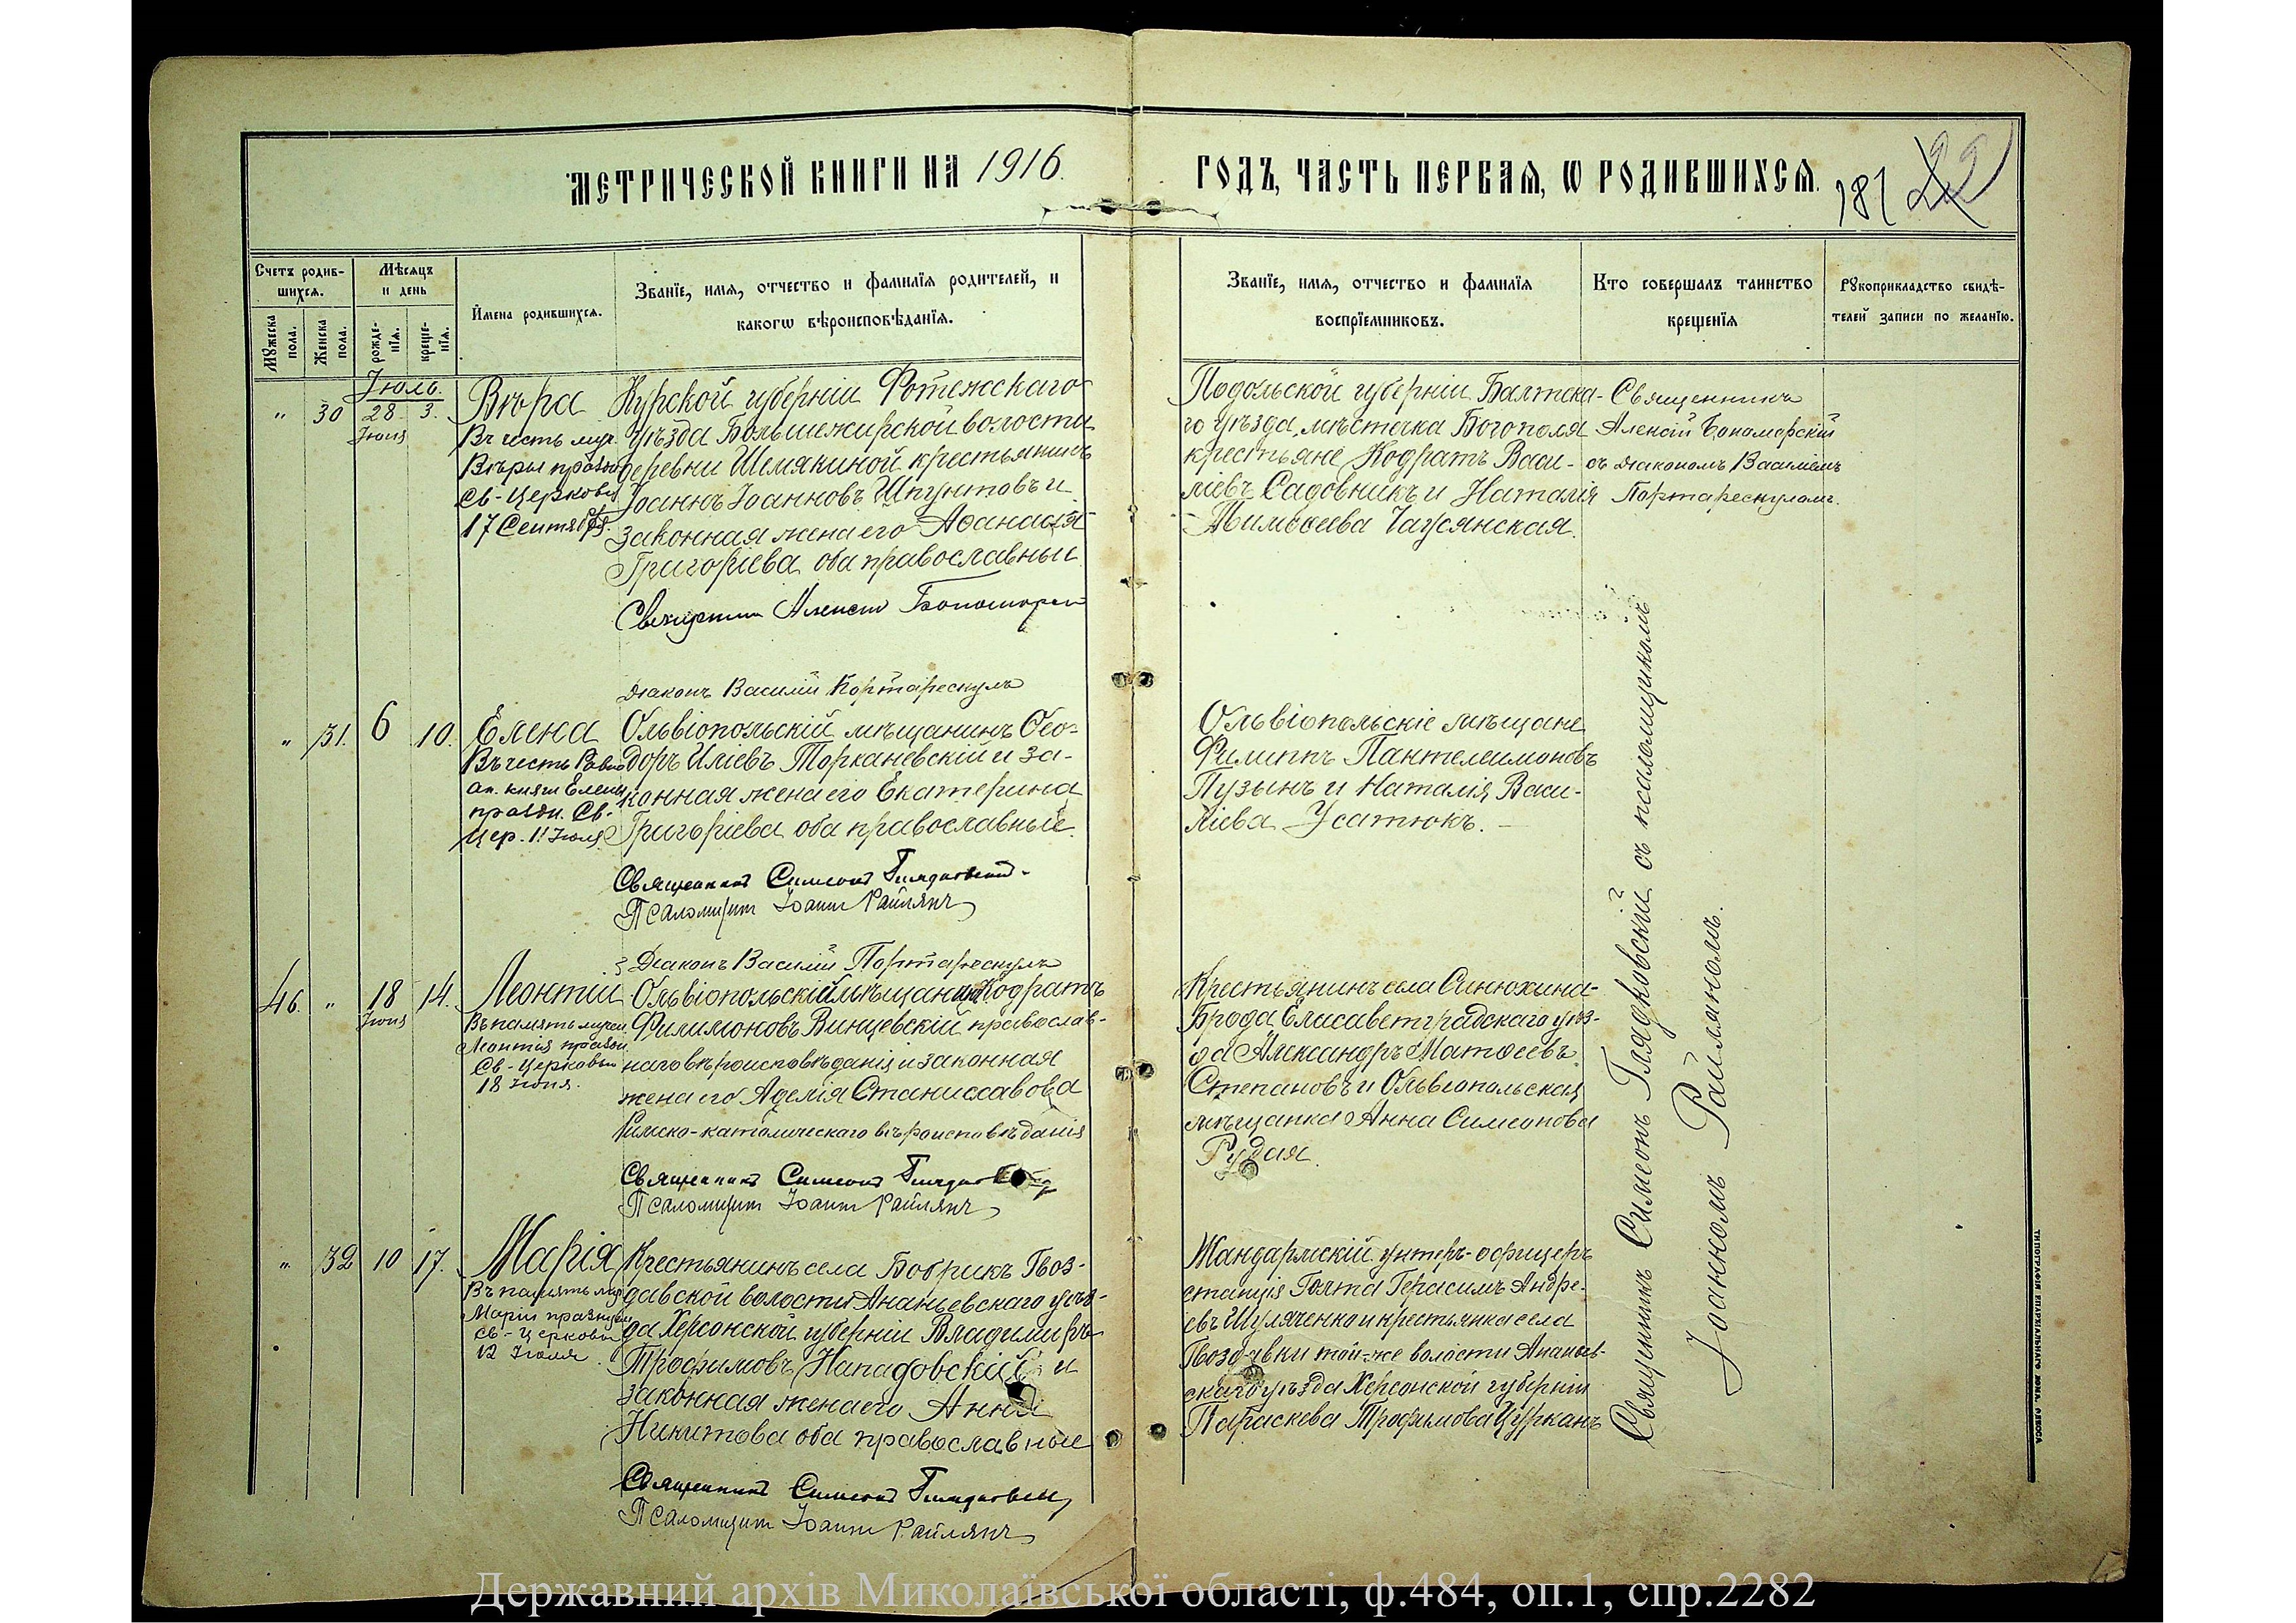 МЕТРИЧЕСКОЙ КНИГИ НА 1916 ГОДЪ, ЧАСТЬ ПЕРВАЯ, Ѡ РОДИВШИХСЯ.
181 22
Счетъ родив-
шихся.
Мужеска
пола.
Женска
пола.
Мѣсяцъ
и день
рожде-
нія.
креще-
нія.
Имена родившихся.
Званіе, имя, отчество и фамилія родителей, и
какогѡ вѣроисповѣданія.
Званіе, имя, отчество и фамилія
воспріемниковъ.
Кто совершалъ таинство
крещенія
Рукоприкладство свидѣ-
телей записи по желанію.
Іюль.
„ 30 28 3.
Іюня
Вѣра
Въ честь муч.
Вѣры праздн
Св-Церковью
17 Сентября.
Курской губерніи Фотежскаго
Уѣзда Большежирской волости
деревни Шемякиной крестьянинъ
Іоаннъ Іоанновъ Шпунтовъ и
законная жена его Аѳанасія
Григоріева оба православные
Священникъ Алексій
Діаконъ Василій Портарескулъ
Подольской губерніи Балтска-
го уѣзда, мѣстечка Богополя
крестьяне Кодратъ Васи-
ліевъ Садовникъ и Наталія
Тимоѳеева
Священникъ
Алексій Бономорскій
съ діакономъ Василіемъ
Портарескуломъ.
„ 31. 6 10.
Елена
Въ честь Равно
ап. княги Елены
праздн. Св-
Цер. 11 Іюля.
Ольвіопольскій мѣщанинъ Ѳео-
доръ Иліевъ Торканевскій и за-
конная жена его Екатерина
Григоріева оба православные.
Священникъ Симеонъ Глядковскій
Псаломщикъ Іоаннъ Райлянъ
Діаконъ Василій Портарескулъ
Ольвіопольскіе мѣщане
Филиппъ Пантелеимоновъ
Пузынъ и Наталія Васи-
ліева Усатюкъ.
46. „ 18 14.
Іюня
Леонтій
Въ память мучен.
Леонтія праздн
Св-Церковью
18 Іюня.
Ольвіопольскій мѣщанинъ Кодратъ
Филимоновъ Винцевскій православ-
наго вѣроисповѣданія и законная
жена его Аделія Станиславова
Римско-католическаго вѣроисповѣданія
Священникъ Симеонъ Глядковскій
Псаломщикъ Іоаннъ Райлянъ
Крестьянинъ села Синюхина-
Брода Елисаветградскаго уѣз-
да Александръ Матѳеевъ
Степановъ и Ольвіопольская
мѣщанка Анна Симеонова
Рудая.
„ 32 10 17.
Марія
Въ память муч
Маріи празнуем
Св-Церковью
12 Іюля.
Крестьянинъ села Бобрикъ Гвоз-
давской волости Ананьевскаго уѣз-
да Херсонской губерніи Владимиръ
Трофимовъ Нападовскій и
законная жена его Анна
Никитова оба православные
Священникъ Симеонъ Глядковскій
Псаломщикъ Іоаннъ Райлянъ
Жандармскій унтеръ-офицеръ
станція Голта Герасимъ Андре-
евъ Шуляченко и крестьянка села
Гвоздавки той-же волости Ананьев-
скаго уѣзда Херсонской губерніи
Параскева Трофимова Цурканъ
Священникъ Симеонъ Глядковскій съ псаломщикомъ
Іоанномъ Райляномъ.
ТИПОГРАФІЯ ЕПАРХІАЛЬНАГО ДОМА, ОДЕССА
Державний архів Миколаївської області, ф.484, оп.1, спр.2282